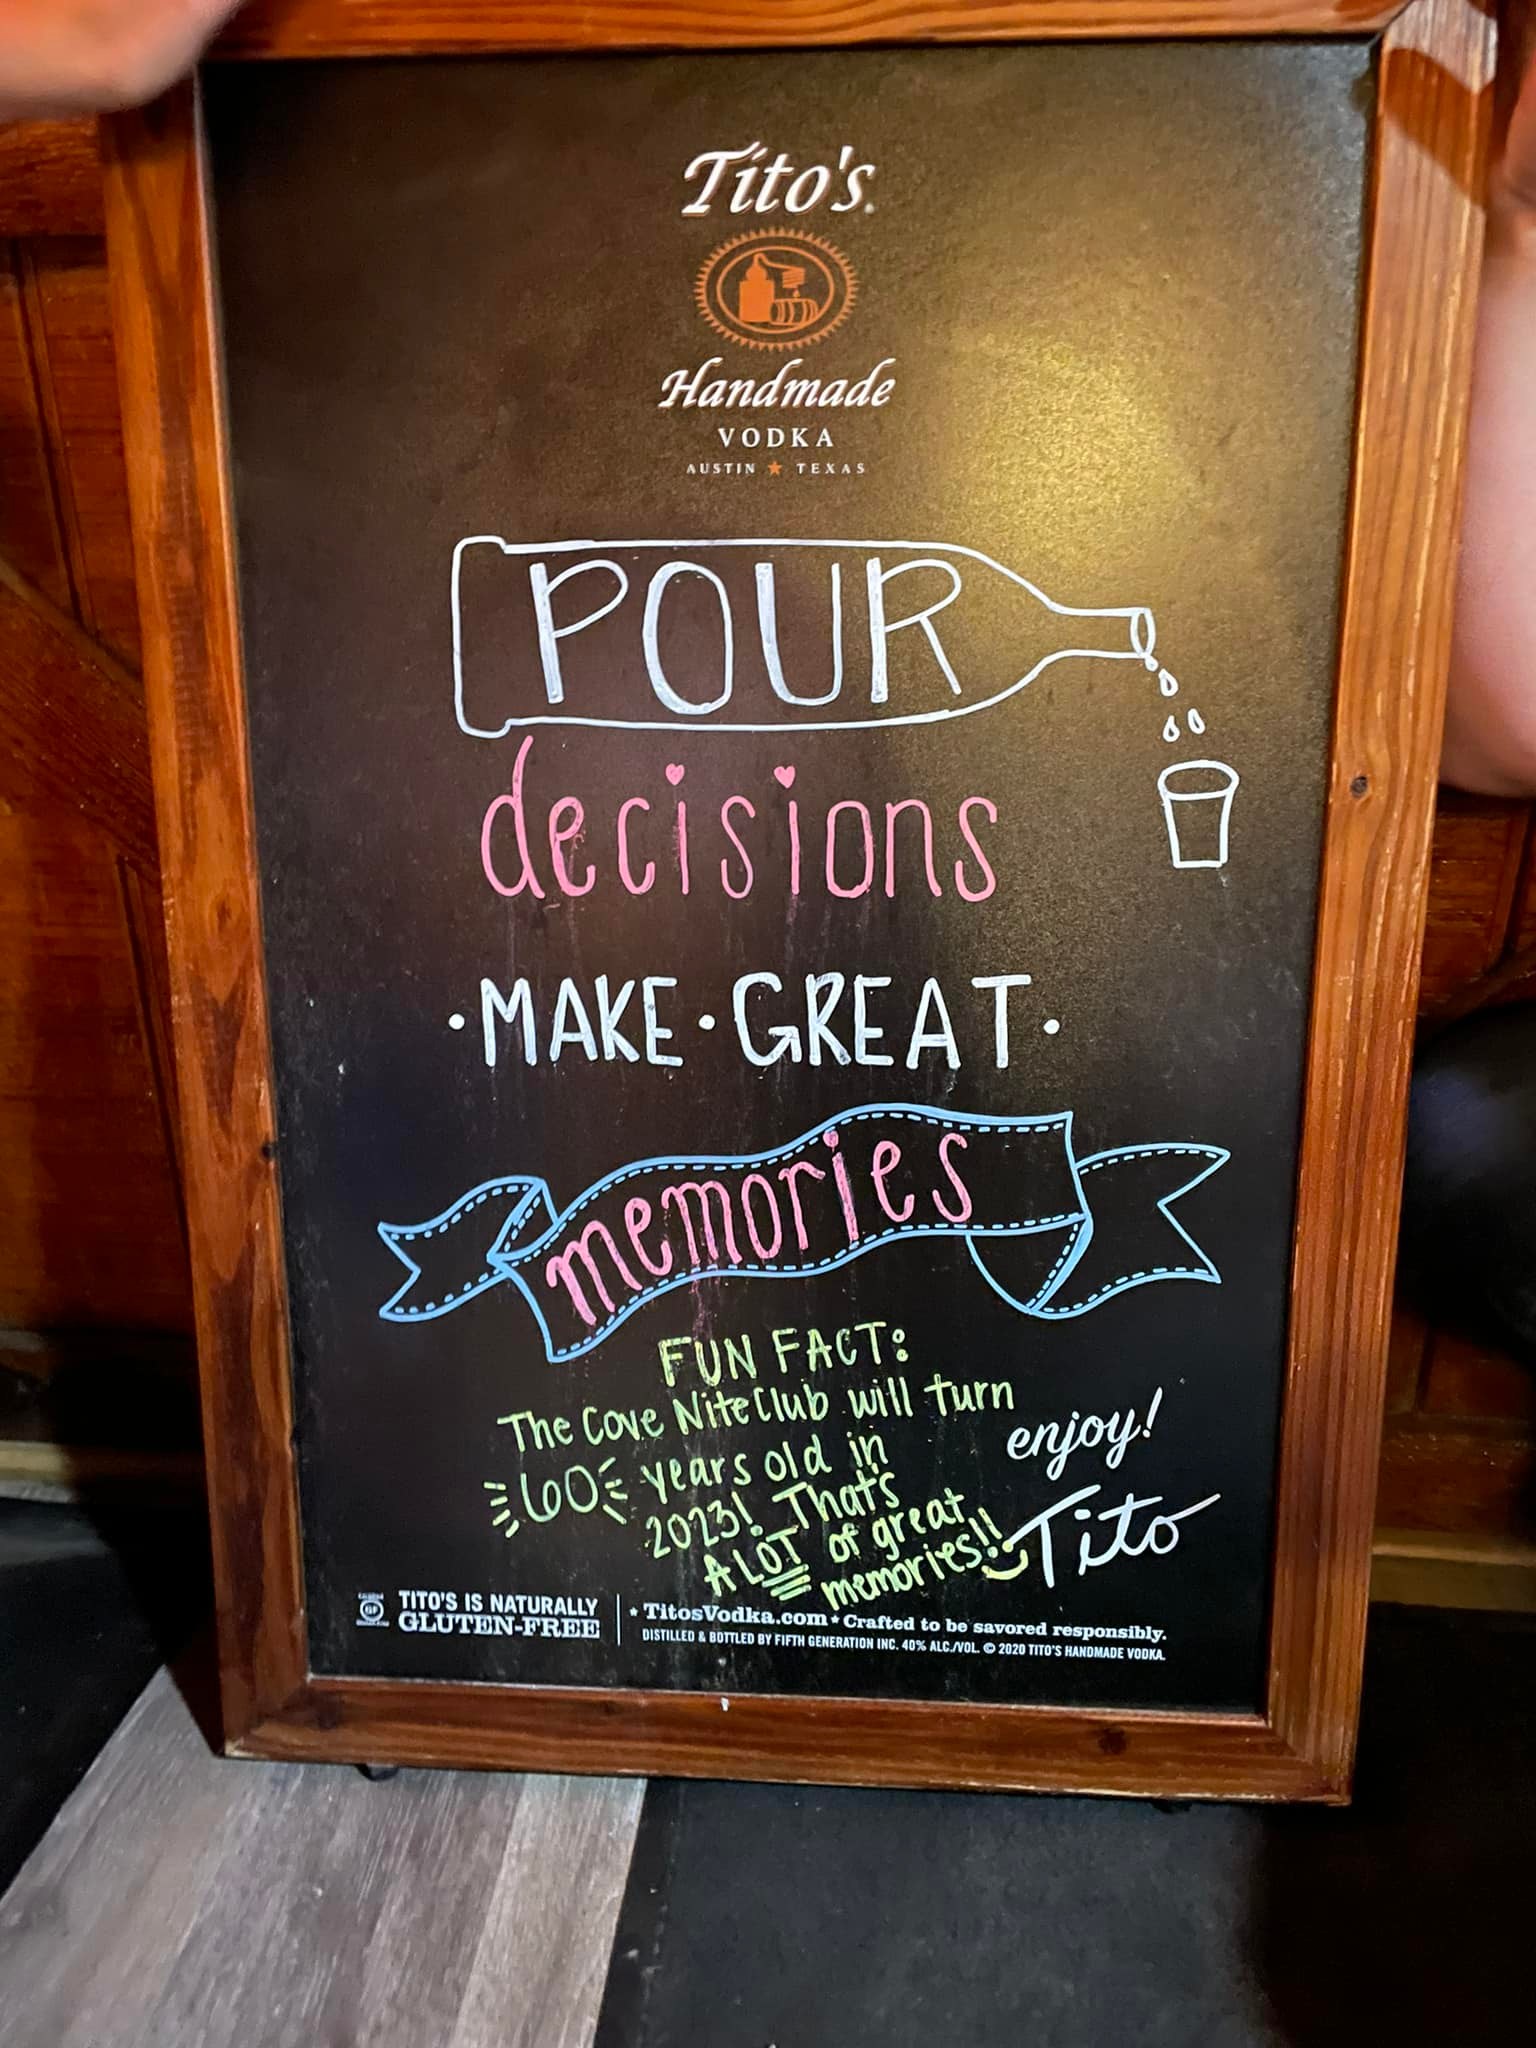 Tito's
Handmade
VODKA
AUSTIN ★ TEXAS
POUR
decisions
·MAKE·GREAT·
memories
FUN FACT:
The Cove NiteClub will turn
60 years old in
2023! That's
A LOT of great
memories!!
enjoy!
Tito
GF
TITO'S IS NATURALLY
GLUTEN-FREE
★ TitosVodka.com ★ Crafted to be savored responsibly.
DISTILLED & BOTTLED BY FIFTH GENERATION INC. 40% ALC./VOL. © 2020 TITO'S HANDMADE VODKA.